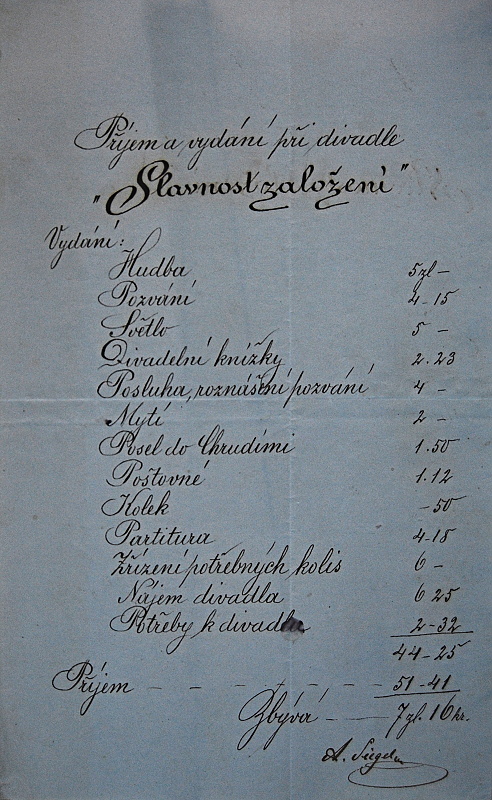 Příjem a vydání při divadle
"Slavnost založení"
Vydání:
Hudba 5 zl –
Pozvání 4 - 15
Světlo 5 –
Divadelní knížky 2 . 23
Posluha, roznášení pozvání 4 –
Mytí 2 –
Posel do Chrudimi 1 . 50
Poštovné 1 . 12
Kolek – 50
Partitura 4 - 18
Zřízení potřebných kolis 6 –
Nájem divadla 6 25
Potřeby k divadlu 2 - 32
44 - 25
Příjem – – – – – – 51 - 41
Zbývá – — 7 zl. 16 kr.
A. Siegel